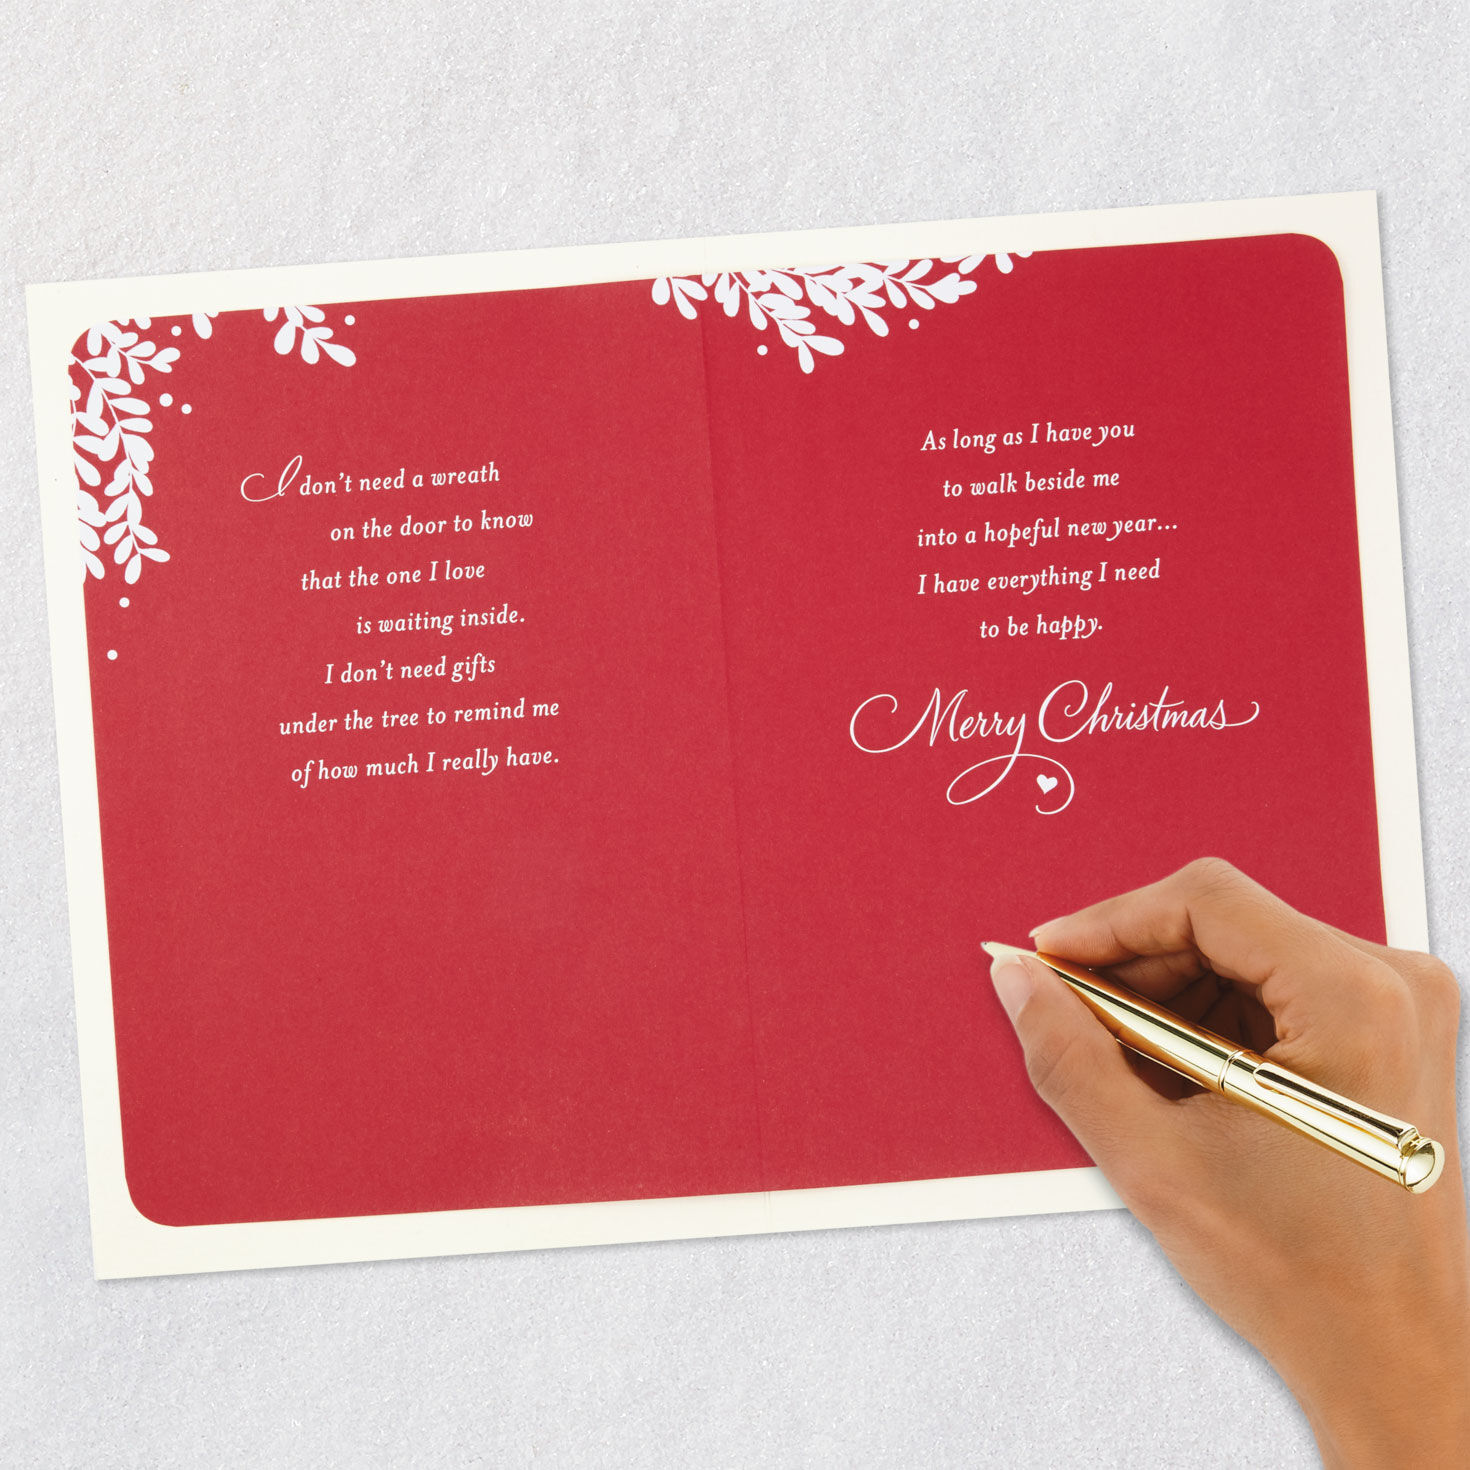 I don't need a wreath
on the door to know
that the one I love
is waiting inside.
I don't need gifts
under the tree to remind me
of how much I really have.
As long as I have you
to walk beside me
into a hopeful new year...
I have everything I need
to be happy.
Merry Christmas